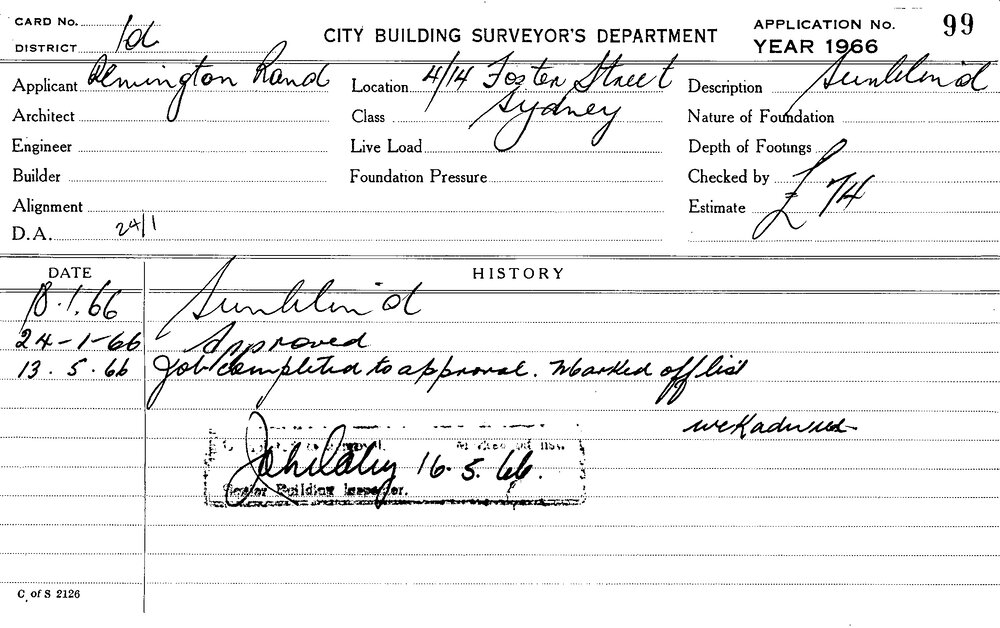 CARD No.
DISTRICT 1d
CITY BUILDING SURVEYOR'S DEPARTMENT
APPLICATION No. 99
YEAR 1966
Applicant Remington Rand
Location 4/14 Foster Street
Sydney
Description Sunblind
Architect
Class
Nature of Foundation
Engineer
Live Load
Depth of Footings
Builder
Foundation Pressure
Checked by
Alignment
Estimate £ 74
D.A. 24/1
DATE HISTORY
18.1.66 Sunblind
24-1-66 Approved
13.5.66 Job completed to approval. Marked off list
16.5.66.
Senior Building Inspector.
C. of S 2126